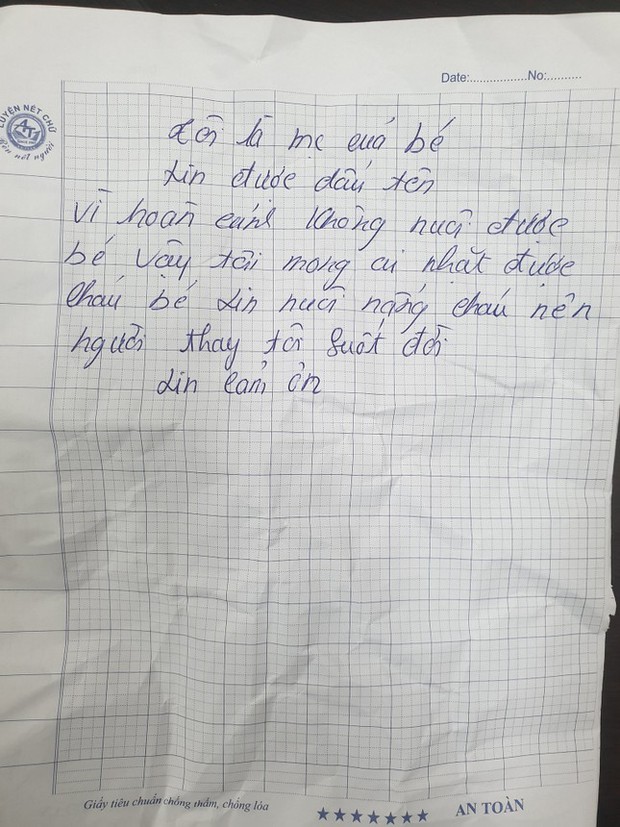 Date:................No:..........
LUYỆN NÉT CHỮ
Rèn nết người
Tôi là mẹ cuả bé
xin được dấu tên
Vì hoàn cảnh không nuôi được
bé vậy tôi mong ai nhặt được
cháu bé xin nuôi nạng cháu nên
người thay tôi suốt đời
xin cảm ơn
Giấy tiêu chuẩn chống thấm, chống lóa
★★★★★★★ AN TOÀN